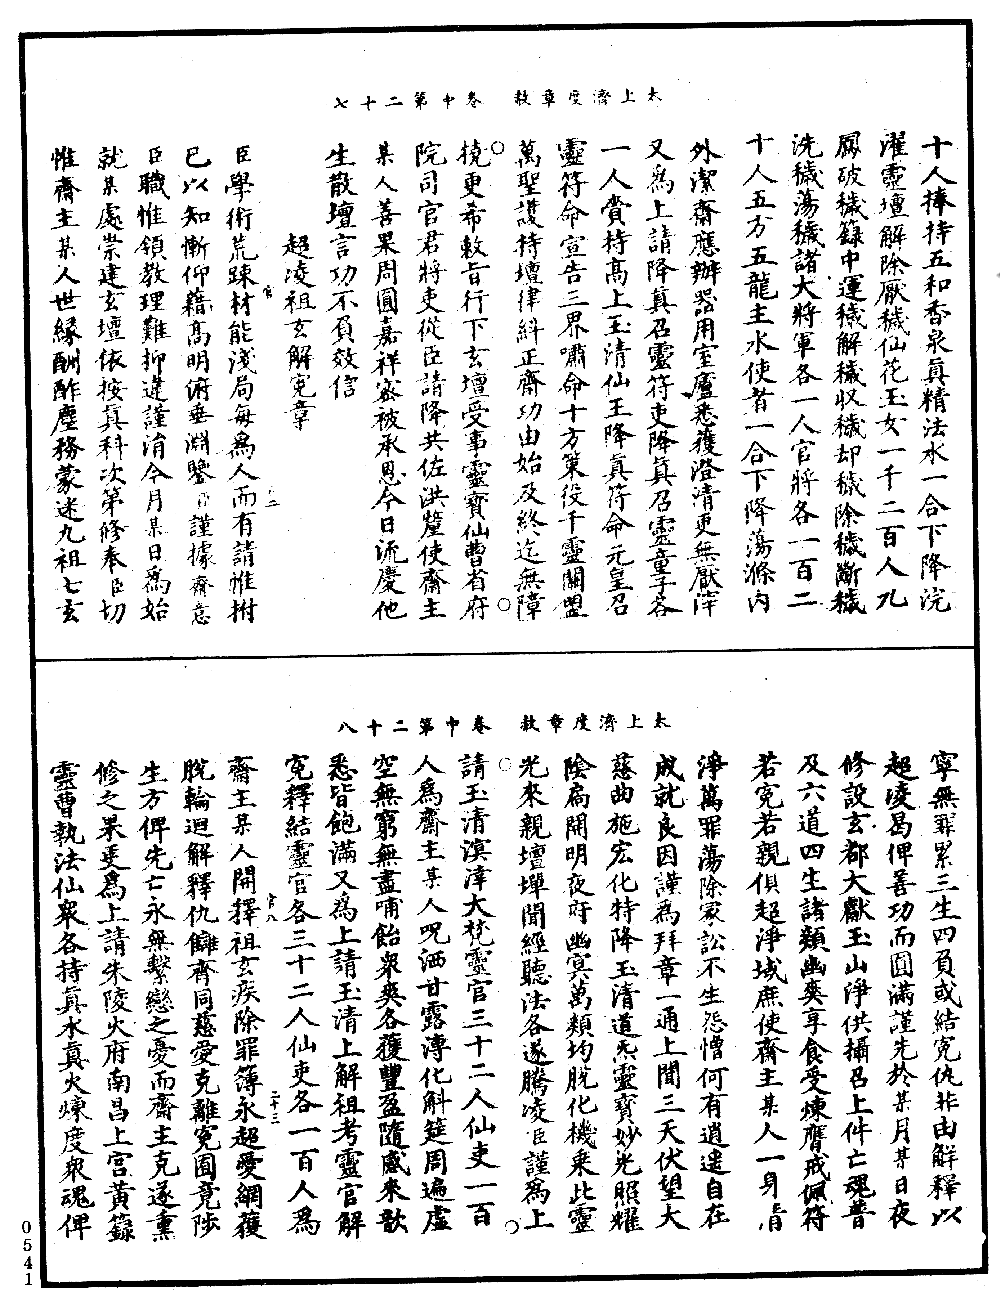 太上濟度章赦　卷中第二十七
十人捧持五和香泉真精法水一合下降浣
濯靈壇解除厭穢仙花玉女一千二百人九
鳳破穢籙中運穢解穢收穢却穢除穢斷穢
洗穢蕩穢諸大將軍各一人官將各一百二
十人五方五龍主水使者一合下降蕩滌内
外潔齋應辦器用室廬悉獲澄清更無厭滓
又爲上請降真召靈符吏降真召靈童子各
一人賞持高上玉清仙王降真符命元皇召
靈符命宣告三界嘯命十方策役千靈關盟
萬聖護持壇律糾正齋功由始及終迄無障
撓更希敕旨行下玄壇受事靈寶仙曹省府
院司官君將吏從臣請降共佐洪釐使齋主
某人善果周圓嘉祥密被承恩今日流慶他
生散壇言功不負效信
超凌祖玄解寃章
臣學術荒踈材能淺局每爲人而有請惟拊
己以知慚仰藉高明俯垂淵鑒臣謹據齋意
臣職惟領教理難抑違謹涓今月某日爲始
就某處崇建玄壇依按真科次第修奉臣切
惟齋主某人世緣酬酢塵務蒙迷九祖七玄
太上濟度章赦　卷中第二十八
寧無罪累三生四負或結寃仇非由解釋以
超凌曷俾善功而圓滿謹先於某月某日夜
修設玄都大獻玉山淨供攝召上件亡魂普
及六道四生諸類幽爽享食受煉膺戒佩符
若寃若親俱超淨域庶使齋主某人一身清
淨萬罪蕩除冢訟不生怨憎何有逍遥自在
成就良因謹爲拜章一通上聞三天伏望大
慈曲施宏化特降玉清道炁靈寶妙光照耀
陰扃開明夜府幽冥萬類均脱化機乘此靈
光來親壇墠聞經聽法各遂騰凌臣謹爲上
請玉清溟涬大梵靈官三十二人仙吏一百
人爲齋主某人呪洒甘露溥化斛筵周遍虛
空無窮無盡哺飴衆爽各獲豐盈隨感來歆
悉皆飽滿又爲上請玉清上解祖考靈官解
寃釋結靈官各三十二人仙吏各一百人爲
齋主某人開釋祖玄疾除罪簿永超愛網獲
脱輪迴解釋仇讎齊同慈愛克離寃圄竟陟
生方俾先亡永無繫戀之憂而齋主克遂熏
修之果更爲上請朱陵火府南昌上宫黄籙
靈曹執法仙衆各持真水真火煉度衆魂俾
0541